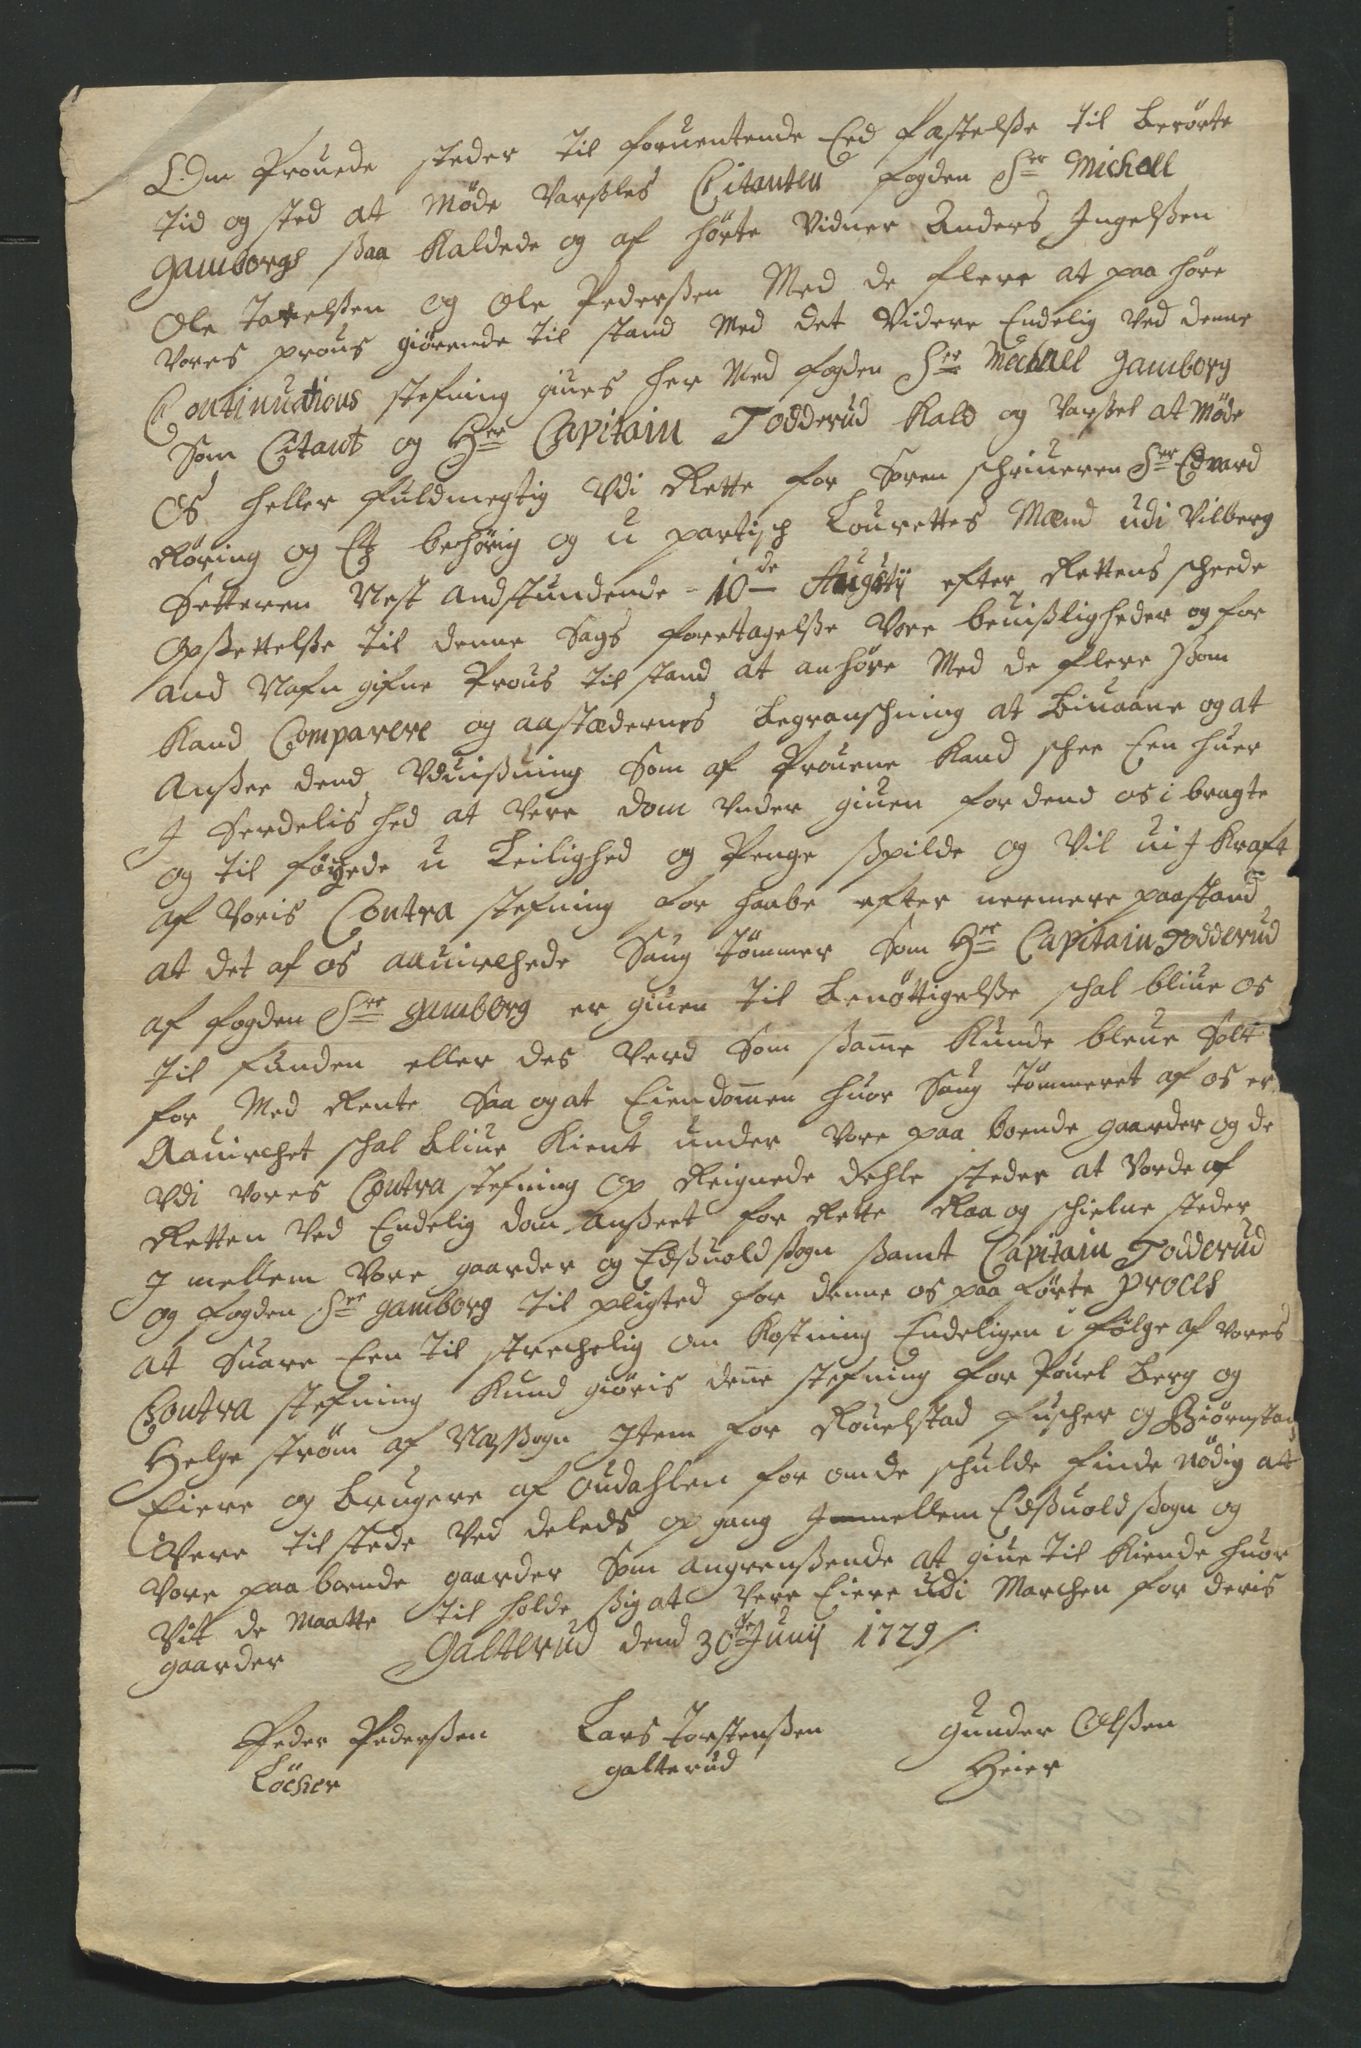 Om Prouede steder til foruentende Eed fæstelsse til berørte
tid og sted at Møde Varssles Citanten fogden Sr Michell
Gamborgs ssaa Kaldede og af hørte Vidner Anders Ingelssen
Ole Torelssen og Ole Pederssen Med de flere at paa høre
Vores prous giørende til stand Med det Videre Endelig Ved denne
Continuations stefning giues her Med fogden Sr Michell Gamborg
Som Citant og Hr Capitain Todderud Kald og Varssel at Møde
Os heller fuldmegtig Udi Rette for Soren schriueren Sr Edvard
Røring og Etz behørig og u partisch Lourettes Mænd udi Vilberg
Setteren Nest Andstundende 10de Augustij efter Rettens scheede
Opssettelsse til denne Sags foretagelsse Vore beuissligheder og for
and Nafn gifne Prous til stand at anhøre Med de flere ssom
Kand Comparere og aastædernes begranschning at biuaane og at
Anssee dend Uduissning Som af Prouene Kand schee Een huer
I Serdelis hed at Vere dom Under giuen for dend os i bragte
og til føyede u Leilighed og Penge sspilde og Vil ui I Kraft
af Voris Contra stefning for haabe efter nermere paastand
at det af os aauirchede Saug tømmer Som Hr Capitain Todderud
af fogden Sr Gamborg er giuen til benøttigelsse schal bliue os
til funden eller des Verd Som ssame Kunde bleue Solt
for Med Rente Saa og at Eiendomen huor Saug tømmeret af os er
Aauirchet schal bliue Kient under Vore paa boende gaarder og de
Udi Vores Contra stefning op Reignede dehle steder at Vorde af
Retten Ved Endelig dom Ansseet for Rette Raa og schielne steder
I mellem Vore gaarder og Edssuold ssogn ssamt Capitain Todderud
og fogden Sr Gamborg til pligted for denne os paa førte proces
at Suare Een til strechelig om Kostning Endeligen i følge af Vores
Contra stefning Kund giøris dene stefning for Pouel Berg og
Helge strøm af Næss ssogn Item for Rouelstad fuscher og Biørnstad
Eiere og Brugere af Oudahlen for om de schulde finde nødig at
Vere til stede Ved deleds op gang Imellem Edssuold ssogn og
Vore paa boende gaarder Som angrenssende at giue til Kiende huor
Vit de Maatte til holde ssig at Vere Eiere udi Marchen for deris
gaarder Galterud dend 30te Junij 1729
Peder Pederssen Lars Torstenssen Gunder Olssen
Löcher galterud Heier